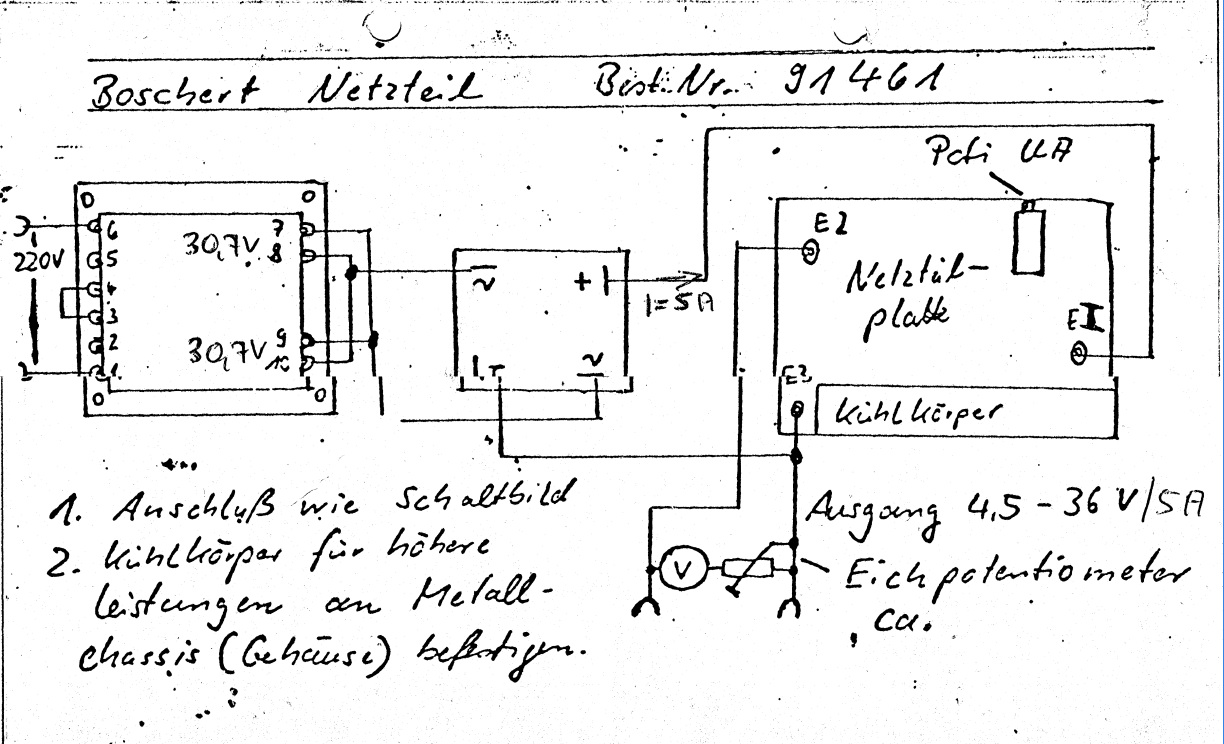 Boschert Netzteil Best. Nr. 91461
Poti UA
6 7
30,7V 8
220V 5
4
3
2 9
30,7V 10
1
~ + I=5A
~
E2
Netzteil-
platte
EI
E3
Kühlkörper
1. Anschluß wie Schaltbild
2. Kühlkörper für höhere
Leistungen an Metall-
chassis (Gehäuse) befestigen.
Ausgang 4,5 - 36 V/5A
V
Eichpotentiometer
ca.